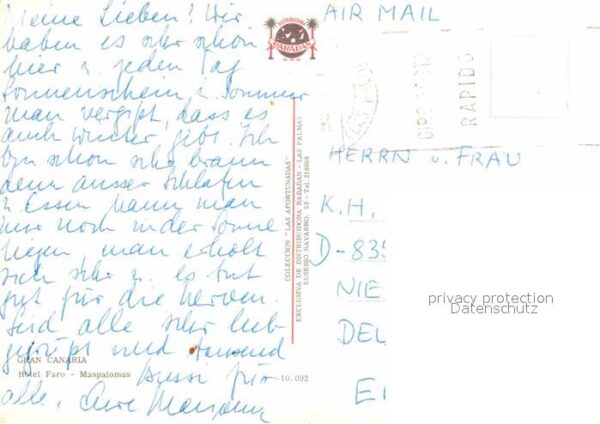 Meine Lieben! Wir
haben es sehr schön
hier u. jeden Tag
Sonnenschein u. Sommer
man vergißt, dass es
auch Winter gibt. Ich
bin schon sehr braun
denn ausser Schlafen
u. Essen kann man
nur noch in der Sonne
liegen, man erholt
sich sehr u. es tut
gut für die Nerven.
Seid alle sehr lieb
gegrüßt und tausend
Bussi für
alle. Eure
GRAN CANARIA
Hotel Faro - Maspalomas
10.092
DISTRIBUIDORA
RABADAN
COLECCION "LAS AFORTUNADAS"
EXCLUSIVA DE DISTRIBUIDORA RABADAN - LAS PALMAS
EUSEBIO NAVARRO, 53 - Tel. 218808
AIR MAIL
GIRO POSTAL
RAPIDO
HERRN u. FRAU
K.H.
D-835
NIE
DE
privacy protection
Datenschutz